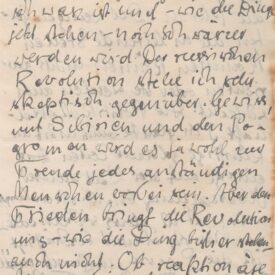 schwer ist und - wie die Dinge
jetzt stehen - noch schwerer
werden wird. Der russischen
Revolution stehe ich sehr
skeptisch gegenüber. Gewiss,
mit Sibirien und den Po-
gromen wird es ja wohl zur
Freude jedes anständigen
Menschen vorbei sein. Aber den
Frieden bringt die Revolution
uns - wie die Dinge bisher stehen
auch nicht. Ob reaktionäre